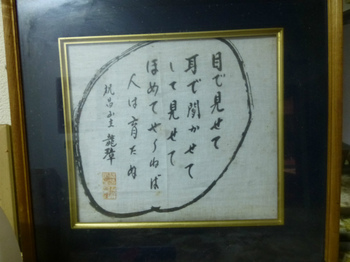 目で見せて
耳で聞かせて
して見せて
ほめてやらねば
人は育たぬ